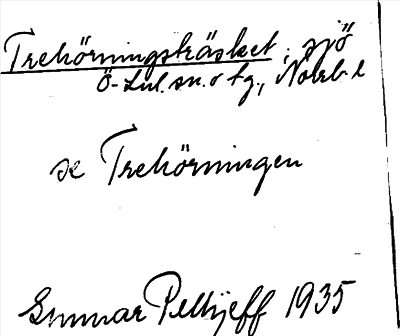 Trehörningsträsket, sjö
Ö-Lul. sn. o tg., Nbtn. l
se Trehörningen
Gunnar Pellijeff 1935